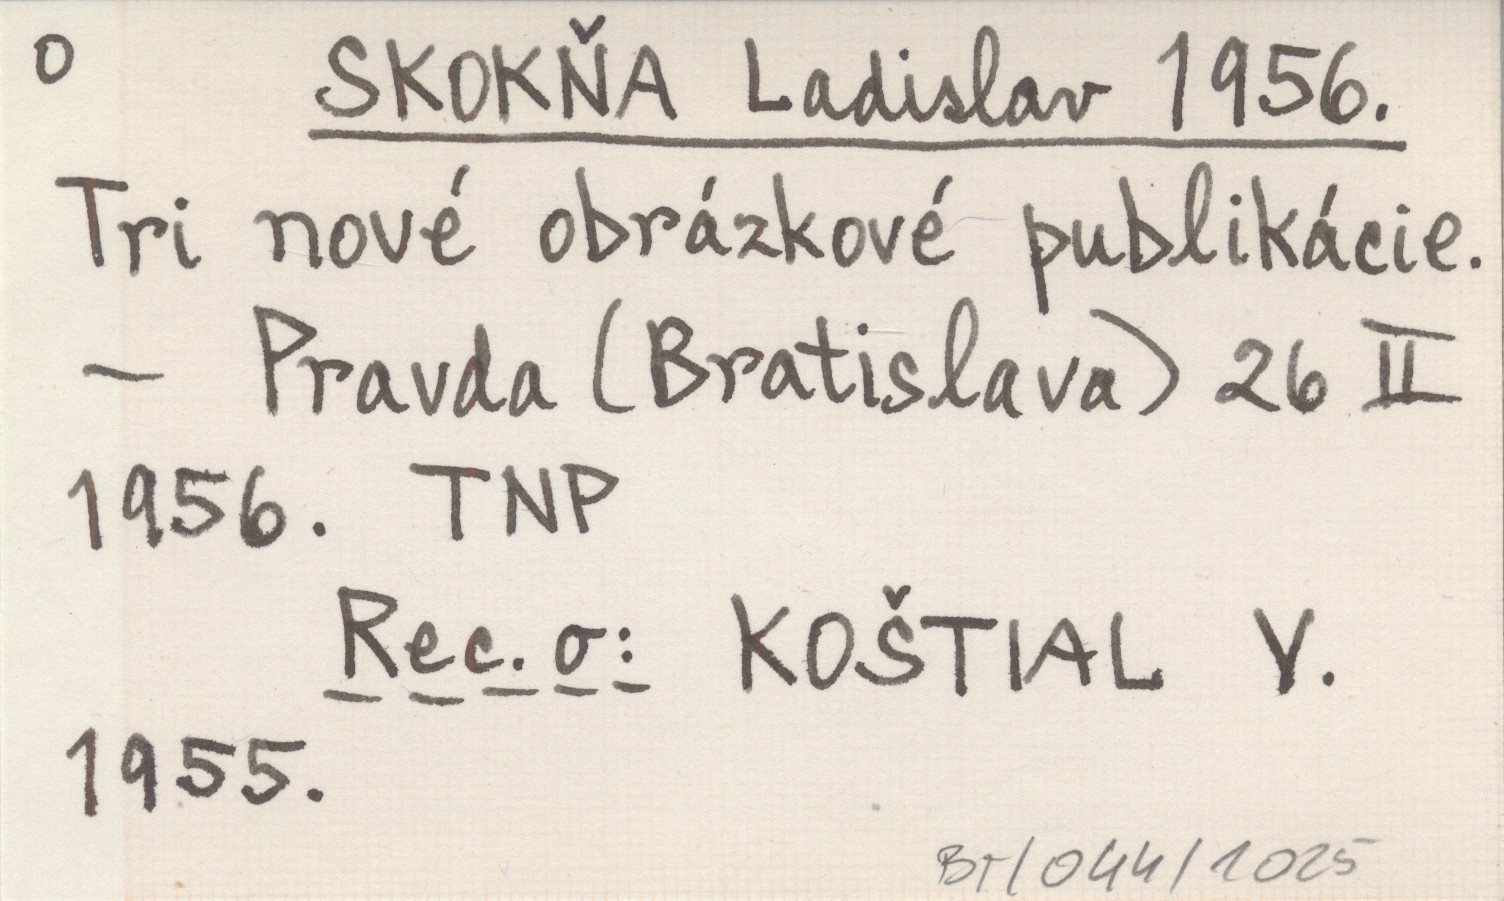 o SKOKŇA Ladislav 1956.
Tri nové obrázkové publikácie.
– Pravda (Bratislava) 26 II
1956. TNP
Rec. o: KOŠTIAL V.
1955.
BT/044/1025